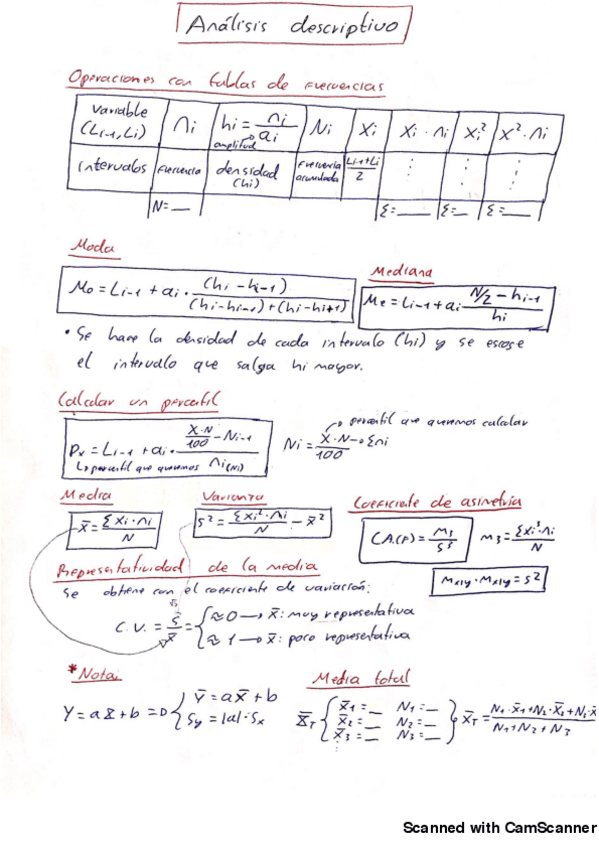 Análisis descriptivo
Operaciones con tablas de frecuencias
Variable (Li-1, Li) | ni | hi = ni/ai amplitud | Ni | Xi | Xi · ni | Xi² | X² · ni
intervalos | frecuencia | densidad (hi) | frecuencia acumulada | Li-1+Li/2 | ⋮ | ⋮ | ⋮
N=__ | Σ=__ | Σ=__ | Σ=__
Moda
Mo = Li-1 + ai · (hi - hi-1) / (hi - hi-1) + (hi - hi+1)
Mediana
Me = Li-1 + ai · N/2 - hi-1 / hi
• Se hace la densidad de cada intervalo (hi) y se escoge
el intervalo que salga hi mayor.
Calcular un percentil
Px = Li-1 + ai · X·N/100 - Ni-1 / ni(Ni)
↳ percentil que queremos
Ni = X·N/100 → Σni
→ percentil que queremos calcular
Media
x̄ = Σxi·ni / N
Varianza
S² = Σxi²·ni / N - x̄²
Coeficiente de asimetría
C.A.(P) = m3/S³
m3 = Σxi³·ni / N
Mx/y · Mx/y = S²
Representatividad de la media
se obtiene con el coeficiente de variación:
C.V. = S/x̄ = { ≈ 0 → x̄: muy representativa
≈ 1 → x̄: poco representativa
* Nota
Y = aX + b ⇒ { Ȳ = aX̄ + b
Sy = |a|·Sx
Media total
X̄T { x̄1=__ N1=__
x̄2=__ N2=__
x̄3=__ N3=__
} x̄T = N1·x̄1 + N2·x̄2 + N3·x̄ / N1 + N2 + N3
Scanned with CamScanner